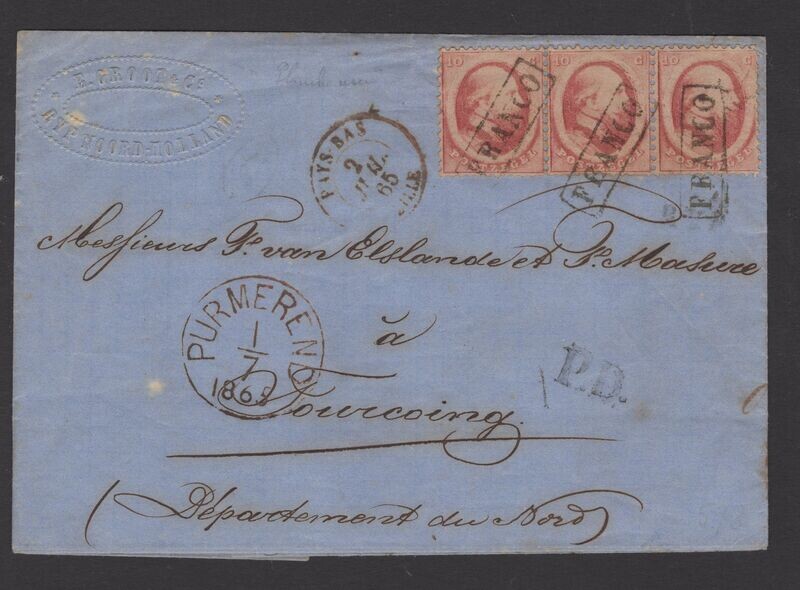 E. GROOT & Co
RYP NOORD-HOLLAND
10 C
POSTZEGEL
FRANCO
10 C
POSTZEGEL
FRANCO
10 C
POSTZEGEL
FRANCO
PAYS-BAS
2
JUIL.
65
LILLE
Messieurs F. van Elslande et P. Masure
PURMEREND
1/7
1865
à
Tourcoing.
P.D.
(Département du Nord)